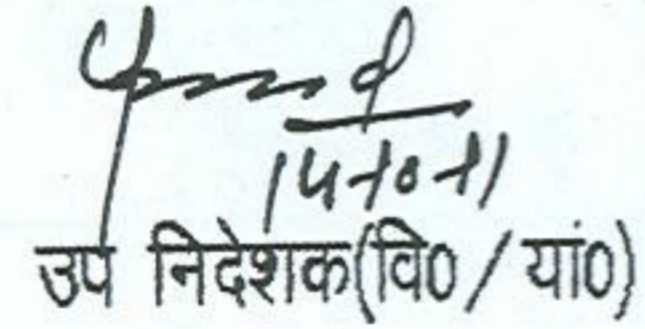 14-10-11
उप निदेशक(वि0/यां0)